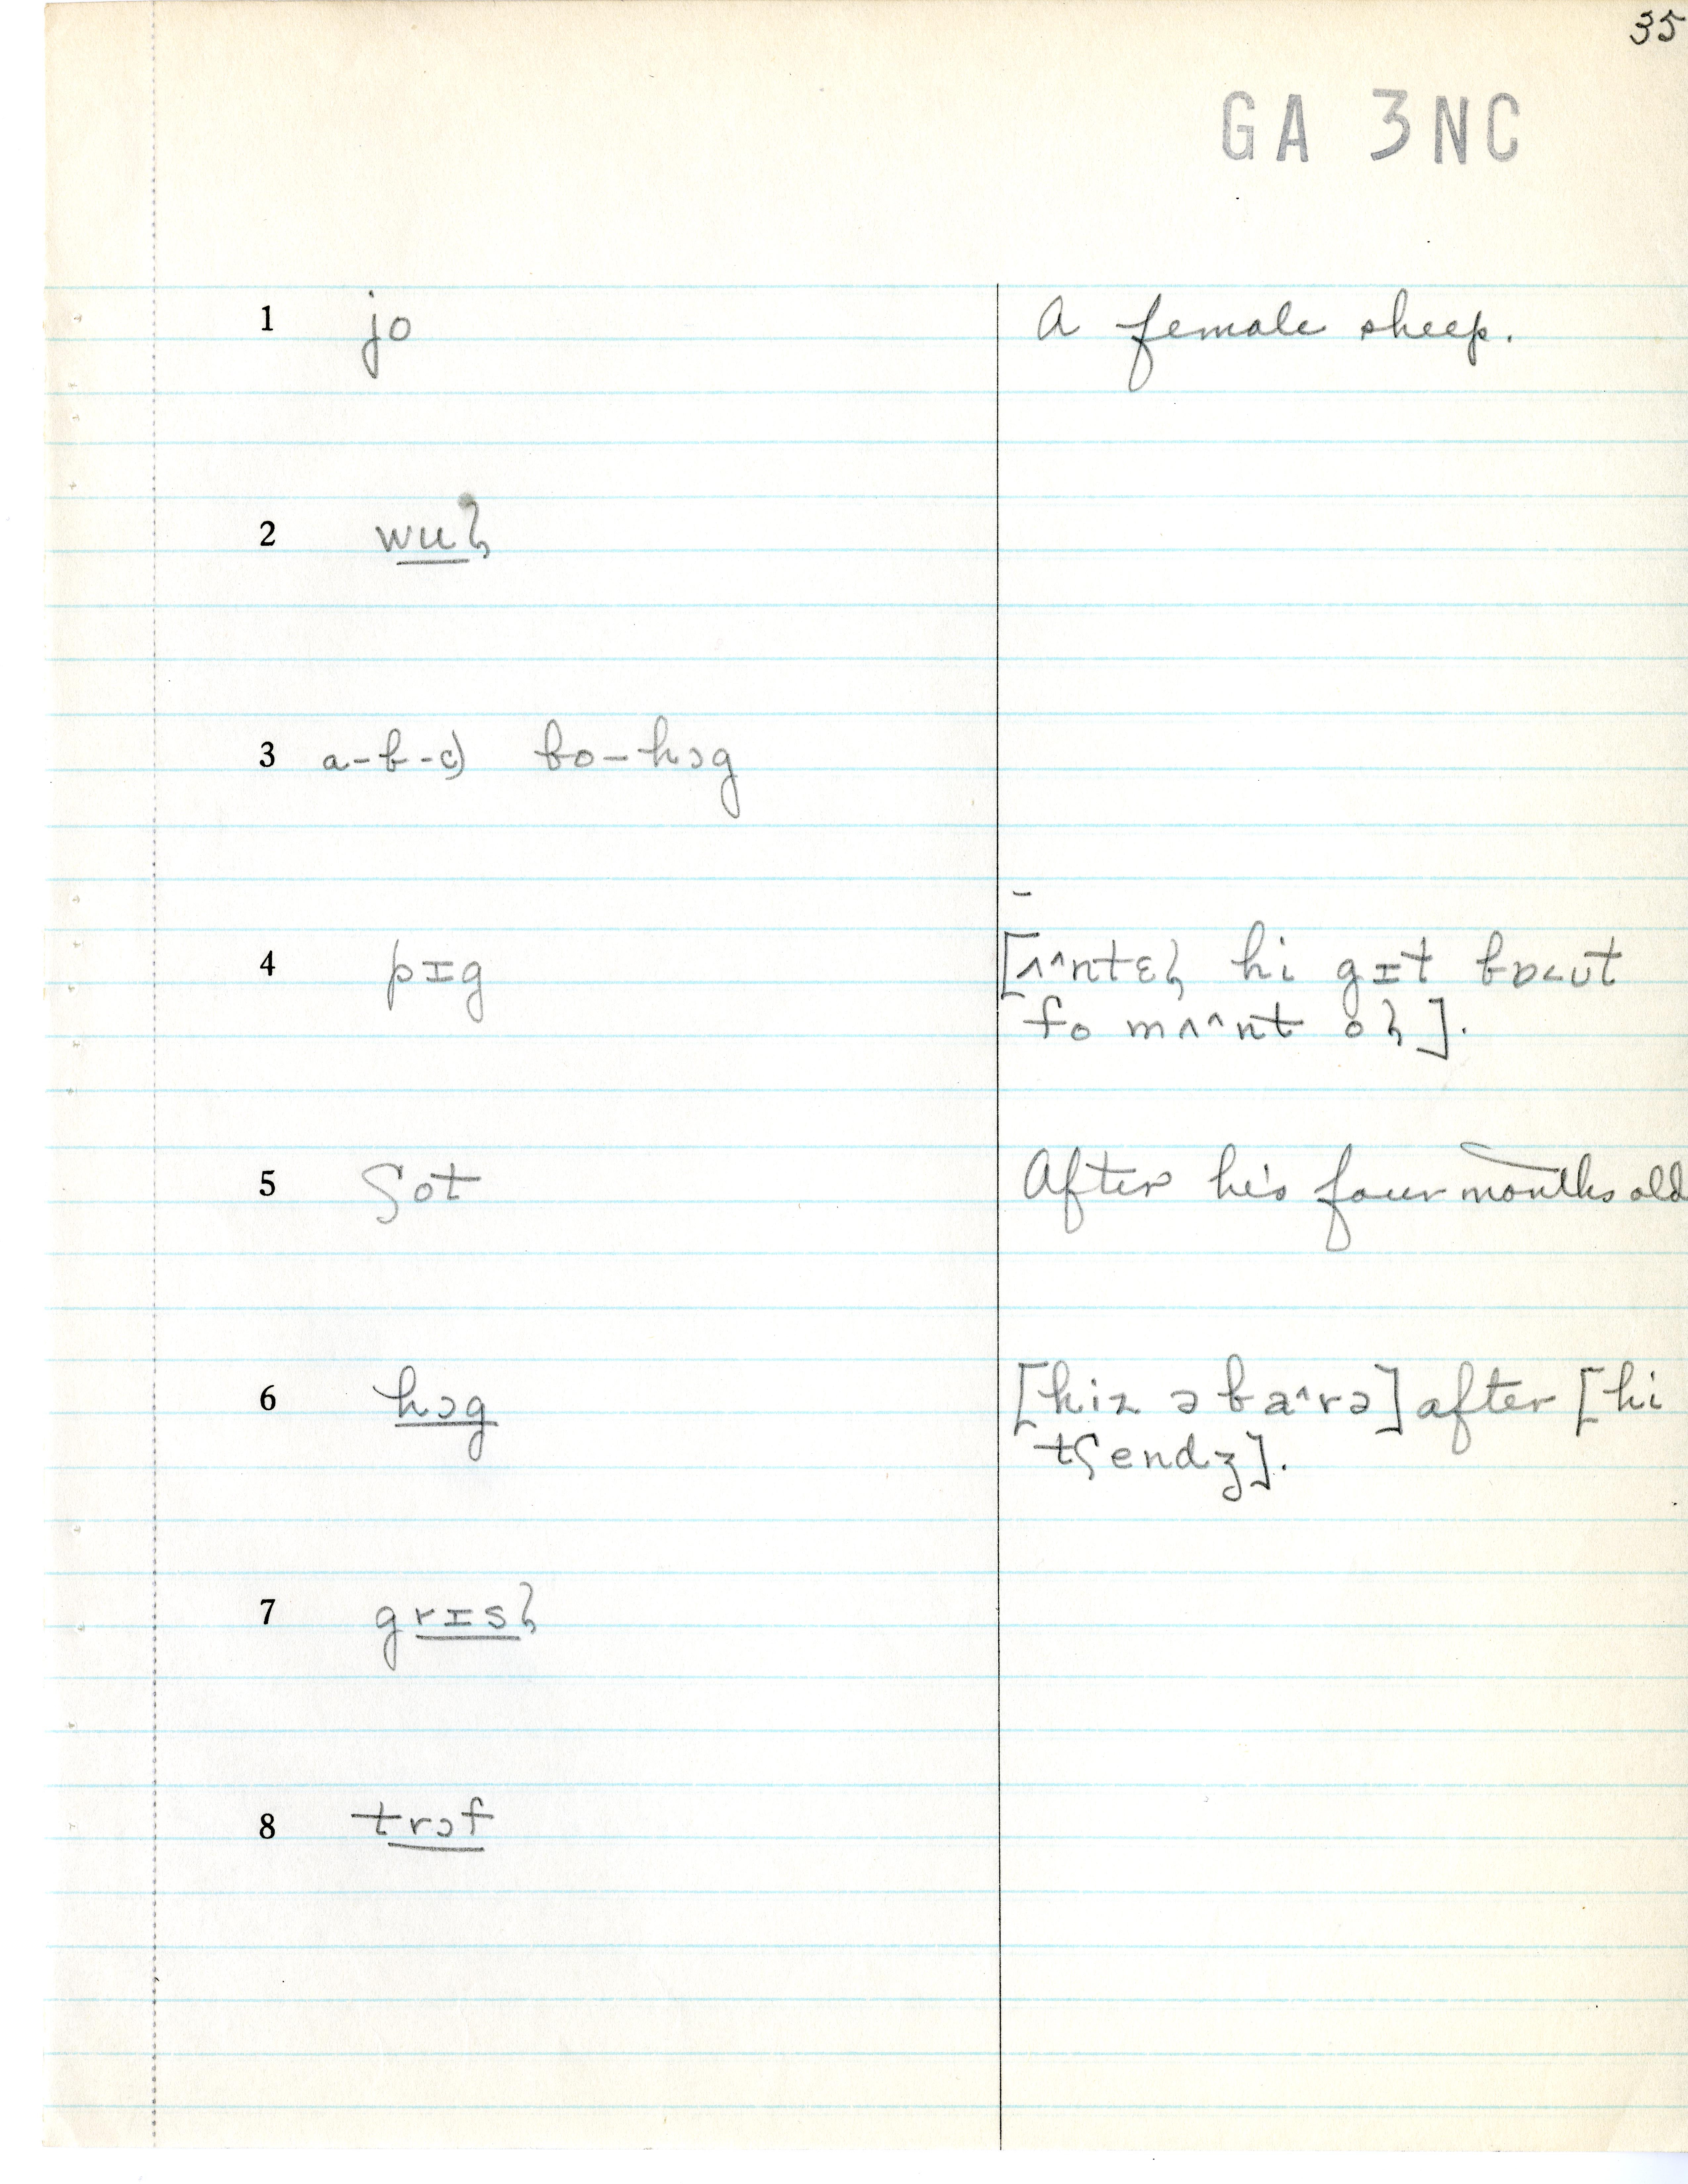 35
GA 3NC
1 jo A female sheep.
2 wuɫ
3 a-b-c) bo-hɔg
4 pɪg [ʌ^ntɛɫ hi gɪt bɒ<ʊt
fo mʌ^nt oɫ].
5 ʃot After he's four months old
6 hɔg [hiz ə ba^rə] after [hi
tʃendʒ].
7 grɪsɫ
8 trɔf